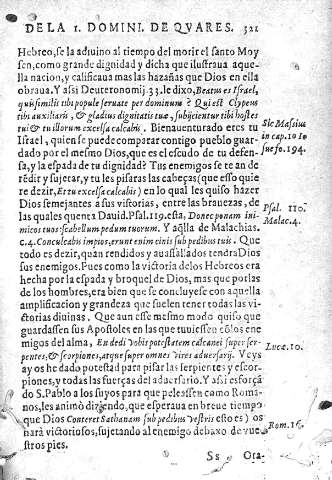 DE LA I. DOMINI. DE QVARES. 321
Hebreo, se la adiuino al tiempo del morir el santo Moy
sen, como grande dignidad y dicha que ilustraua aque-
lla nacion, y calificaua mas las hazañas que Dios en ella
obraua. Y assi Deuteronomij. 33. le dixo, Beatus es Israel,
quis similis tibi popule seruate per dominum? Qui est Clypeus
tibi auxiliaris, & gladius dignitatis tuæ, subijcientur tibi hostes
tui & tu illorum excelsa calcabis. Bienauenturado eres tu
Israel, quien se puede comparar contigo pueblo guar-
dado por el mesmo Dios, que es el escudo de tu defen-
sa, y la espada de tu dignidad? Tus enemigos se te an de
rēdir y sujetar, y tu les pisaras las cabeças (que esso quie
re dezir, Et tu excelsa calcabis) en lo qual les quiso hàzer
Dios semejantes a sus victorias, entre las brauezas, de
las quales quenta Dauid. Psal. 119. esta, Donec ponam ini-
micos tuos scabellum pedum tuorum. Y aq̃lla de Malachias.
c. 4. Conculcabis impios, erunt enim cinis sub pedibus tuis. Que
todo es dezir, quan rendidos y auassallados tendra Dios
sus enemigos. Pues como la victoria de los Hebreos era
hecha por la espada y broquel de Dios, mas que por las
de los hombres, era bien que se concluyese con aquella
amplificacion y grandeza que suelen tener todas las vi-
ctorias diuinas. Que aun esse mesmo modo quiso que
guardassen sus Apostoles en las que tuuiessen cō los ene
migos del alma, En dedi vobis potestatem calcanei super ser-
pentes, & scorpiones, atque super omnes vires aduersarij. Veys
ay os he dado potestad para pisar las serpientes y escor-
piones, y todas las fuerças del aduersario. Y assi esforçá
do S. Pablo a los suyos para que peleassen como Roma-
nos, les animò diziendo, que esperaua en breue tiempo
que Dios Conteret Sathanam sub pedibus vestris esto es) os
hara victoriosos, sujetando al enemigo debaxo de vue-
stros pies.
Ss Ora-
Sic Massius
in cap. 10 Io
sue fo. 194.
Psal. 110.
Malac. 4.
Lucæ. 10.
Rom. 16.